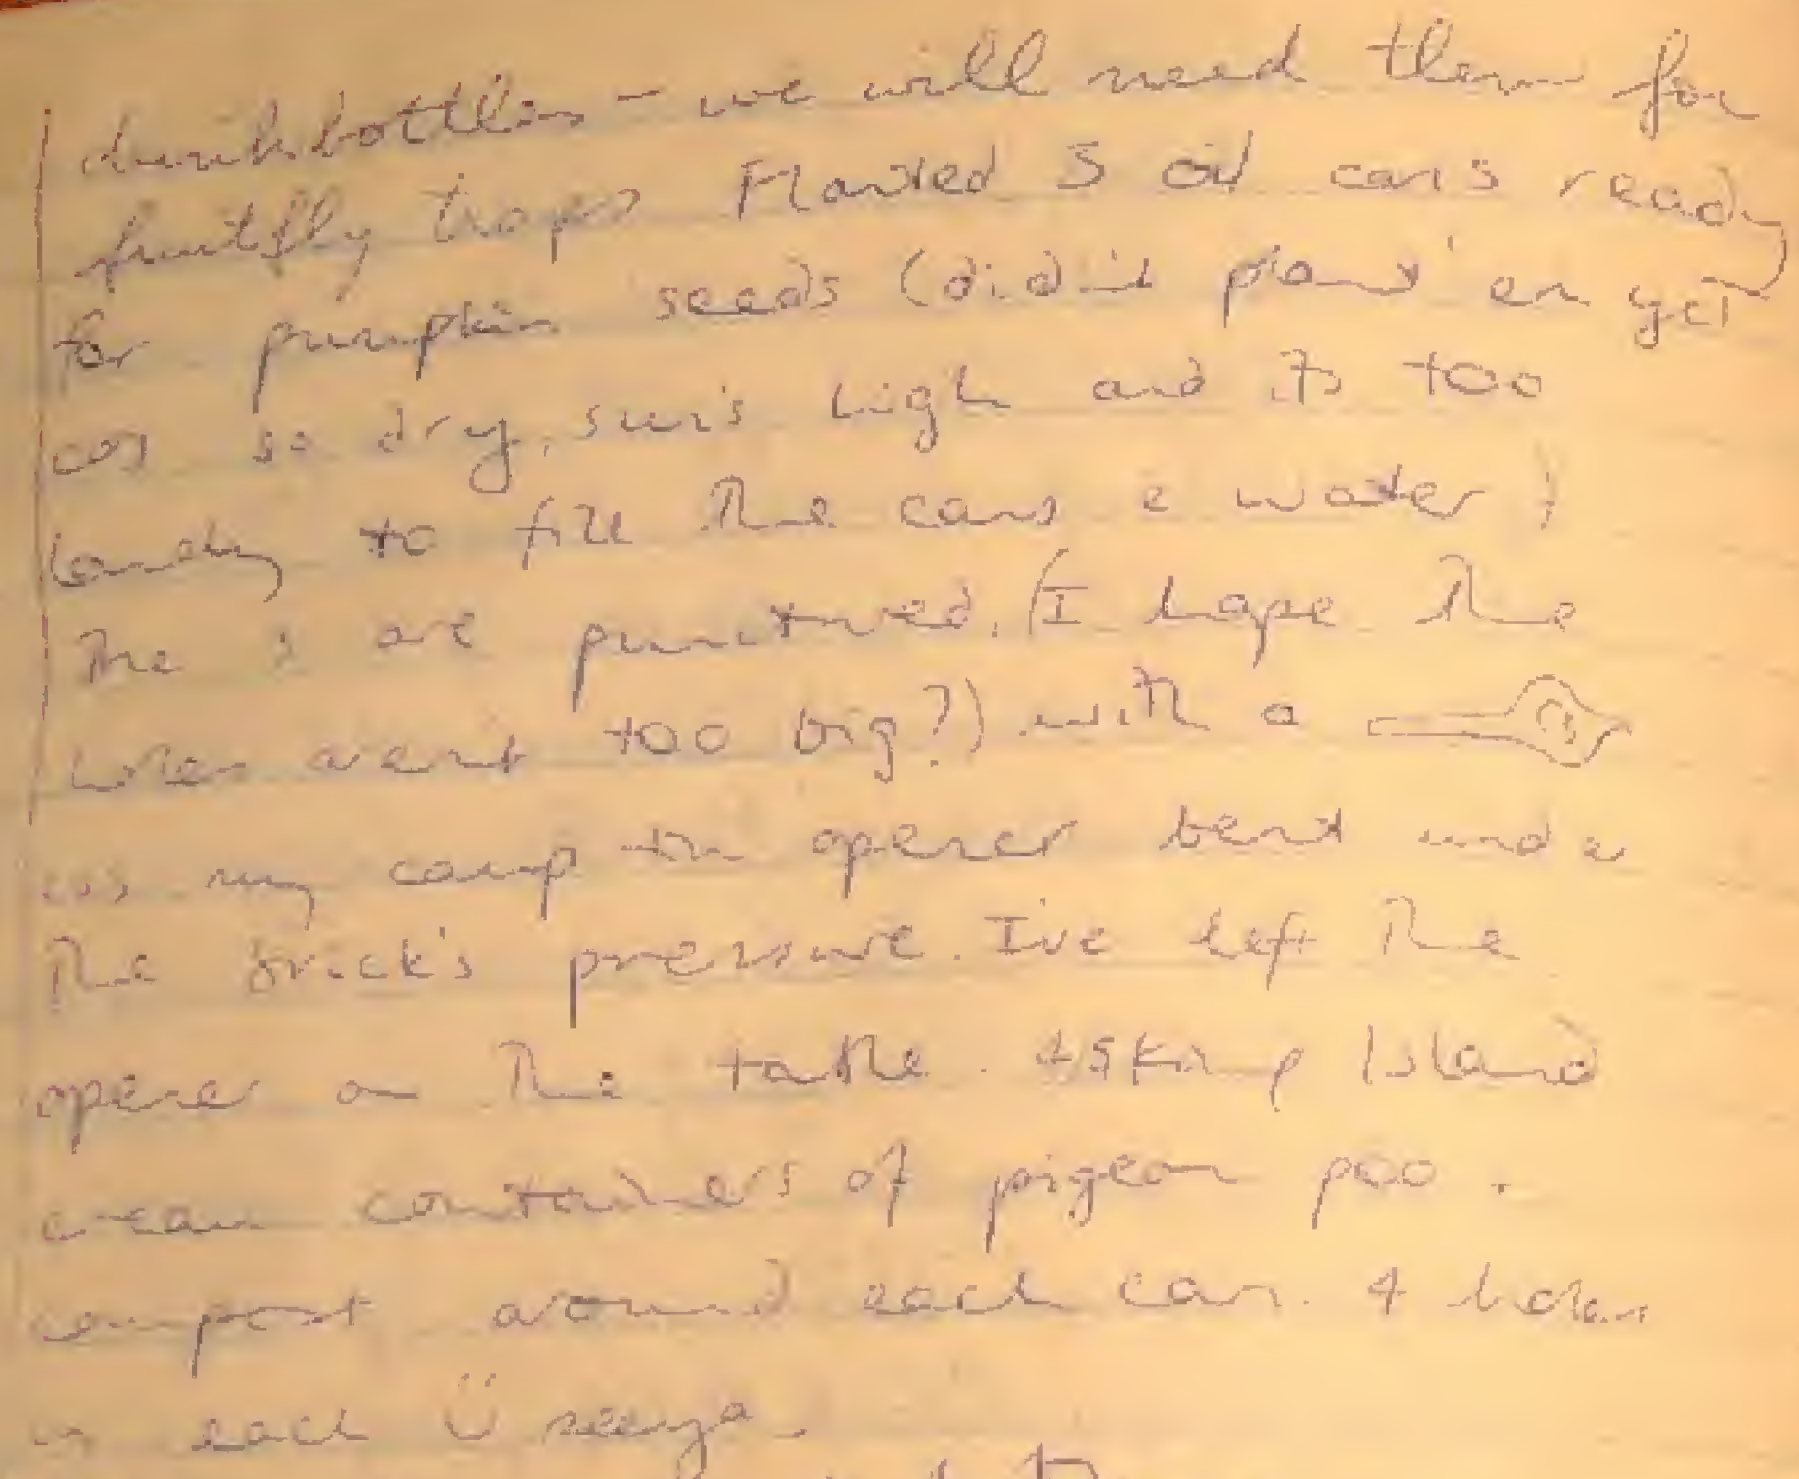 drinkbottles - we will need them for
fruitfly traps Planted 5 oil cans ready
for pumpkin seeds (didn't plant 'em yet)
cos so dry, sun's high and it's too
to fill the cans c water)
The 5 are punctured. (I hope the
holes aren't too big?) with a
cos my camp tin opener bent under
the brick's pressure. I've left the
opener on the table. 4 5kg Island
cream containers of pigeon poo +
compost around each can. 4 holes
in each Ü seeya.